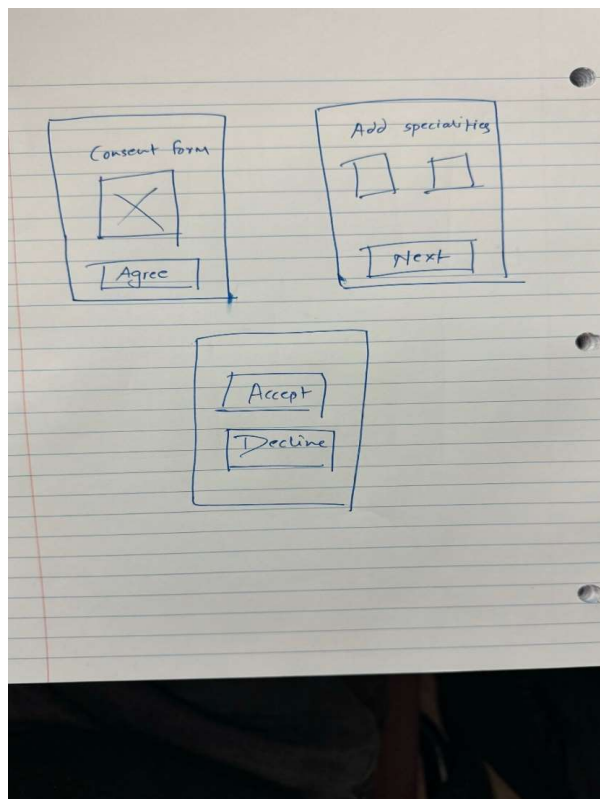 Consent form
Agree
Add specialities
Next
Accept
Decline